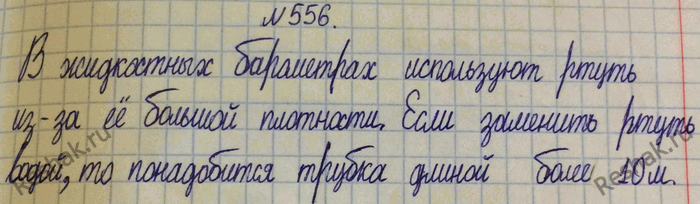 №556.
В жидкостных барометрах используют ртуть
из-за её большой плотности. Если заменить ртуть
водой, то понадобится трубка длиной более 10м.
Reshak.ru
Reshak.ru